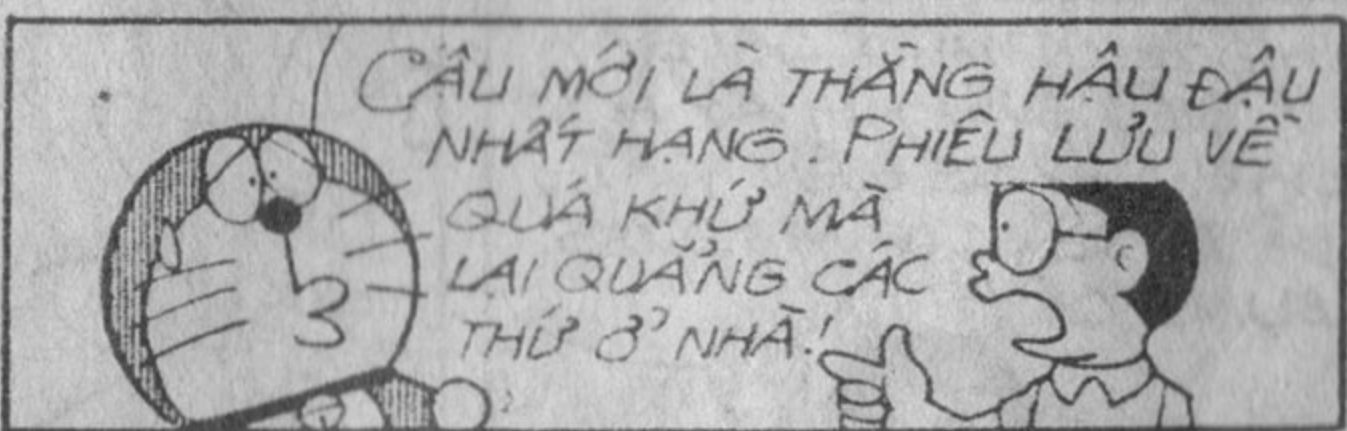 CẬU MỚI LÀ THẰNG HẬU ĐẬU
NHẤT HẠNG. PHIÊU LƯU VỀ
QUÁ KHỨ MÀ
LẠI QUẲNG CÁC
THỨ Ở NHÀ!